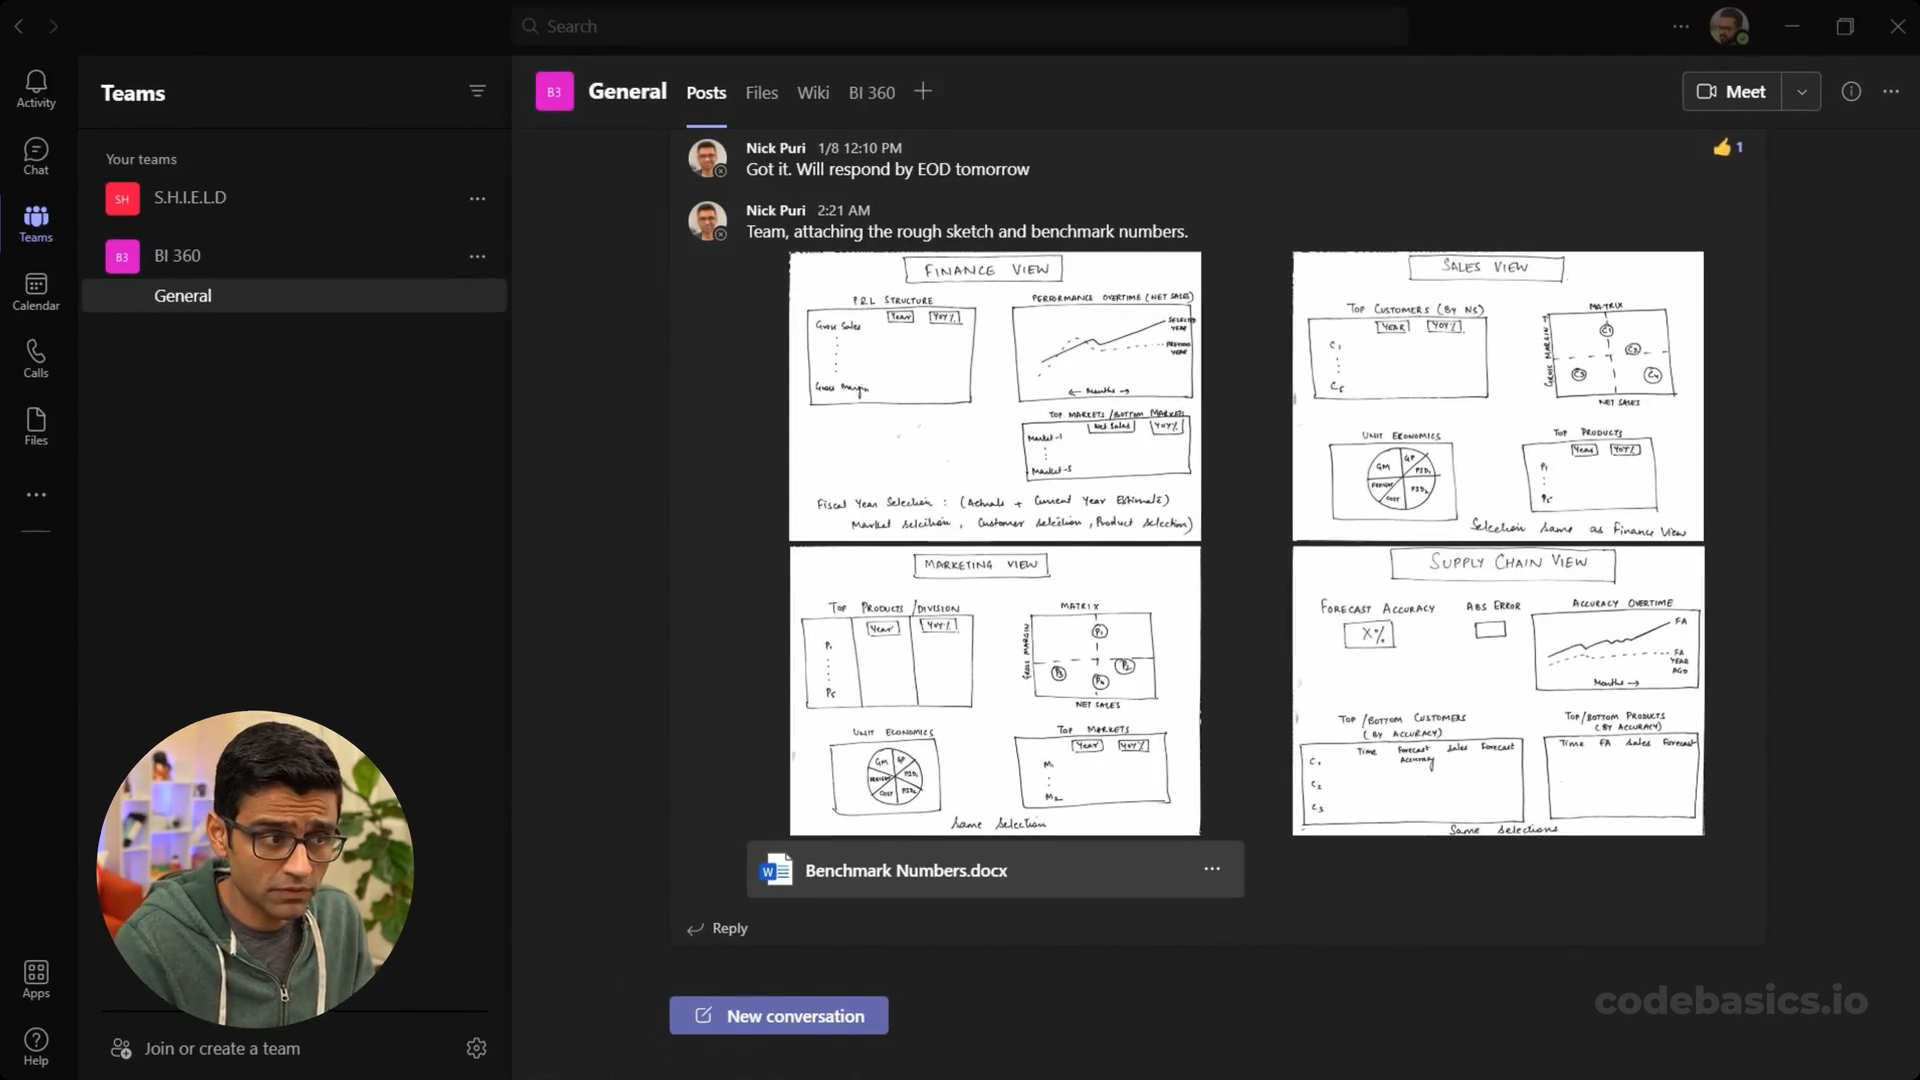 Search
Activity
Chat
Teams
Calendar
Calls
Files
Apps
Help
Teams
Your teams
SH
S.H.I.E.L.D
B3
BI 360
General
Join or create a team
B3
General
Posts
Files
Wiki
BI 360
Meet
Nick Puri 1/8 12:10 PM
Got it. Will respond by EOD tomorrow
1
Nick Puri 2:21 AM
Team, attaching the rough sketch and benchmark numbers.
FINANCE VIEW
P&L STRUCTURE
Year YOY%
Gross Sales
Gross Margin
PERFORMANCE OVERTIME (NET SALES)
SELECTED
YEAR
PREVIOUS
YEAR
← Months →
TOP MARKETS/BOTTOM MARKETS
Net Sales YOY%
Market-1
Market-5
Fiscal Year Selection : (Actuals + Current Year Estimate)
Market selection, Customer selection, Product selection)
SALES VIEW
TOP CUSTOMERS (BY NS)
YEAR YOY%
C1
C5
MATRIX
GROSS MARGIN →
C1
C2
C3
C4
NET SALES
UNIT ECONOMICS
GM GP
PID1
FREIGHT
COST PID2
TOP PRODUCTS
Year YOY%
P1
P5
Selection same as Finance View
MARKETING VIEW
TOP PRODUCTS /DIVISION
Year YOY%
P1
P5
MATRIX
GROSS MARGIN
P1
P2
P3
P4
NET SALES
UNIT ECONOMICS
GM GP
PID1
FREIGHT
COST PID2
TOP MARKETS
Year YOY%
M1
M2
Same selection
SUPPLY CHAIN VIEW
FORECAST ACCURACY
X%
ABS ERROR
ACCURACY OVERTIME
FA
FA
YEAR
AGO
Months →
TOP/BOTTOM CUSTOMERS
(BY ACCURACY)
Time Forecast Sales Forecast
Accuracy
C1
C2
C3
TOP/BOTTOM PRODUCTS
(BY ACCURACY)
Time FA Sales Forecast
Same selections
Benchmark Numbers.docx
Reply
New conversation
codebasics.io